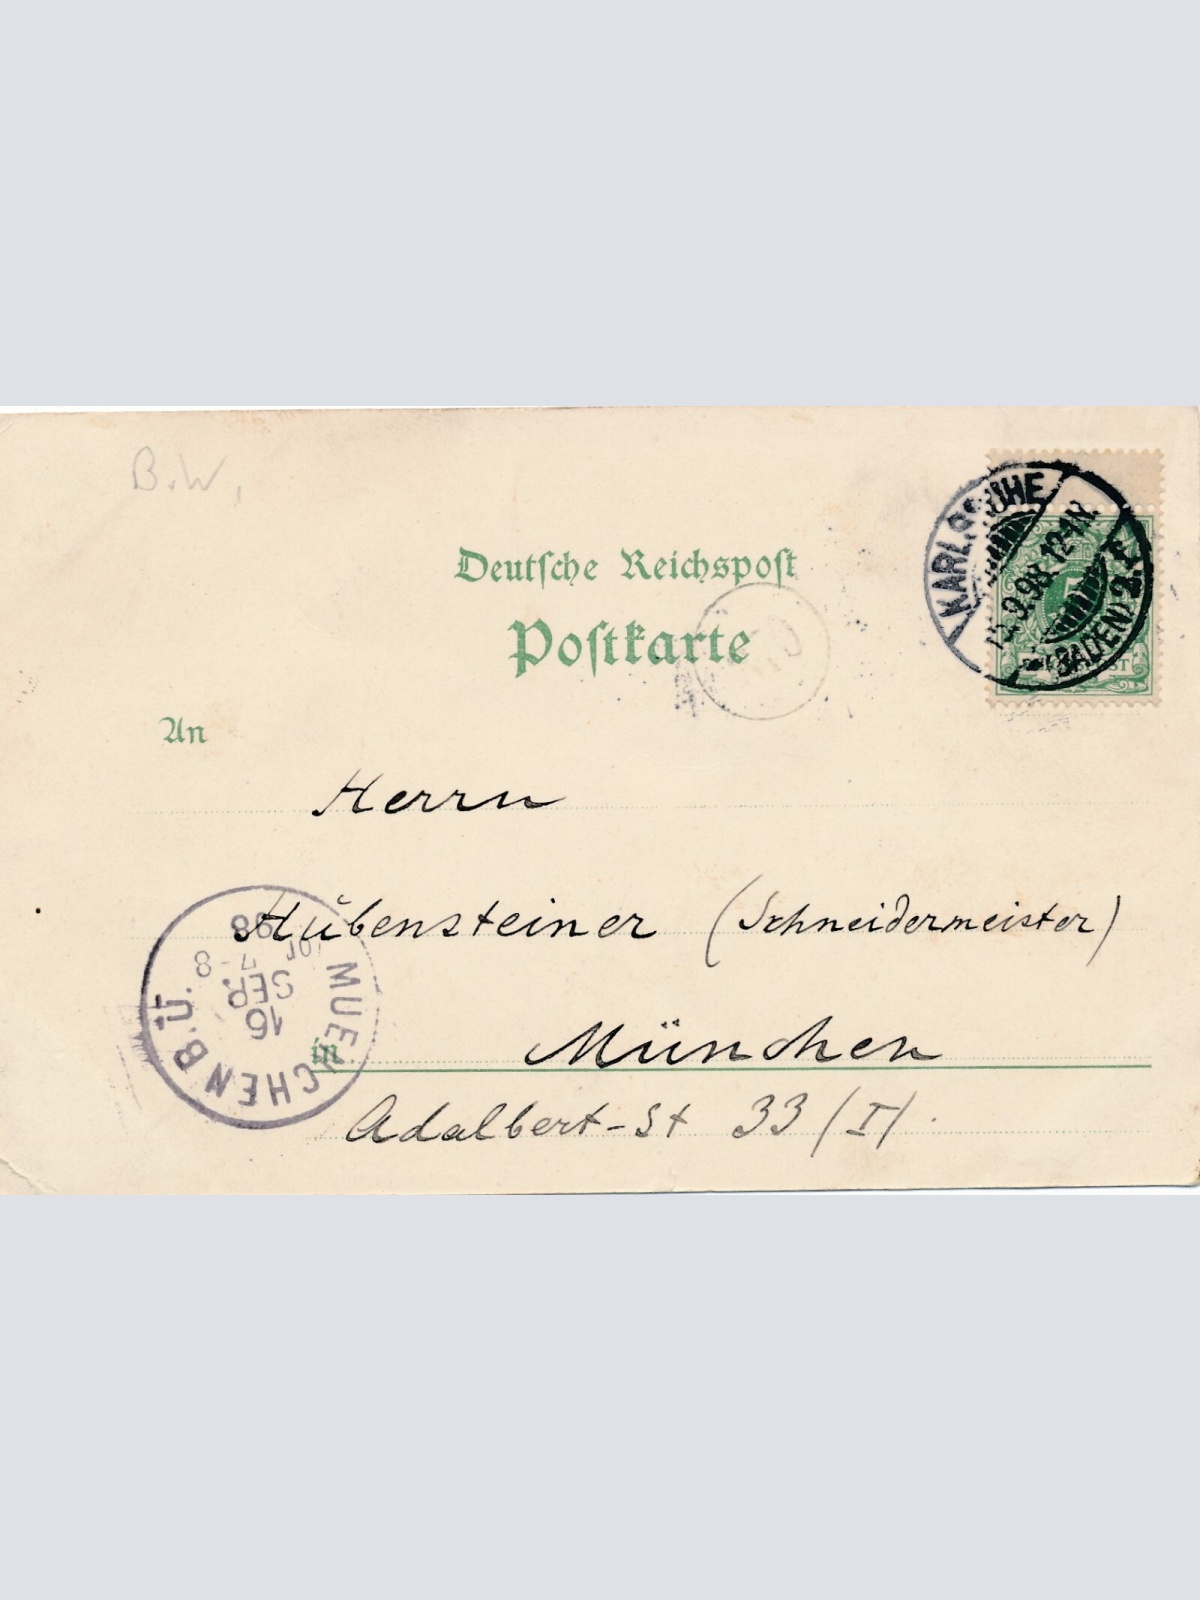 B.W.
Deutsche Reichspost
Postkarte
KARLSRUHE
9.98.12-1N.
(BADEN) 2.
5
An
Herrn
Hübensteiner (Schneidermeister)
in München
Adalbert-St 33 (I).
MUENCHEN B.Ü.
16
SEP.
7-8
98